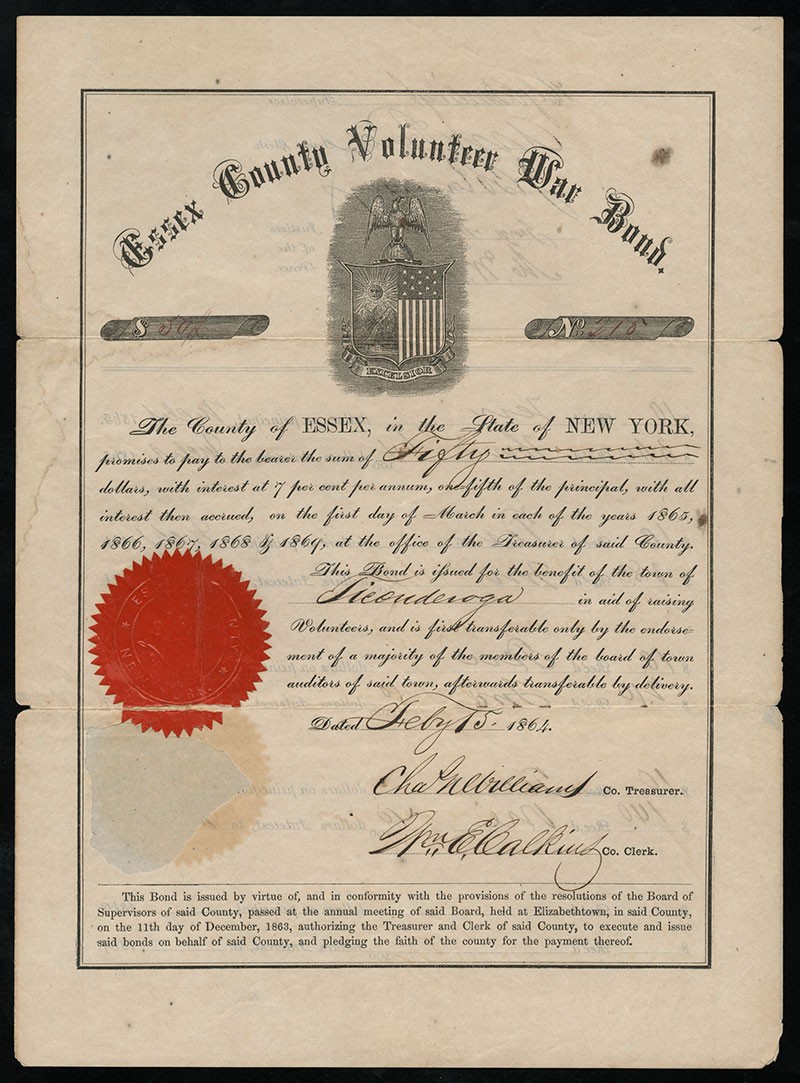 Essex County Volunteer War Bond.
$ 50
No. 215
EXCELSIOR
The County of ESSEX, in the State of NEW YORK,
promises to pay to the bearer the sum of Fifty
dollars, with interest at 7 per cent per annum, one-fifth of the principal, with all
interest then accrued, on the first day of March in each of the years 1865,
1866, 1867, 1868 & 1869, at the office of the Treasurer of said County.
This Bond is issued for the benefit of the town of
Ticonderoga in aid of raising
Volunteers, and is first transferable only by the endorse-
ment of a majority of the members of the board of town
auditors of said town, afterwards transferable by delivery.
Dated Feby 15. 1864.
Chas N Williams Co. Treasurer.
Wm. E. Calkins Co. Clerk.
This Bond is issued by virtue of, and in conformity with the provisions of the resolutions of the Board of
Supervisors of said County, passed at the annual meeting of said Board, held at Elizabethtown, in said County,
on the 11th day of December, 1863, authorizing the Treasurer and Clerk of said County, to execute and issue
said bonds on behalf of said County, and pledging the faith of the county for the payment thereof.